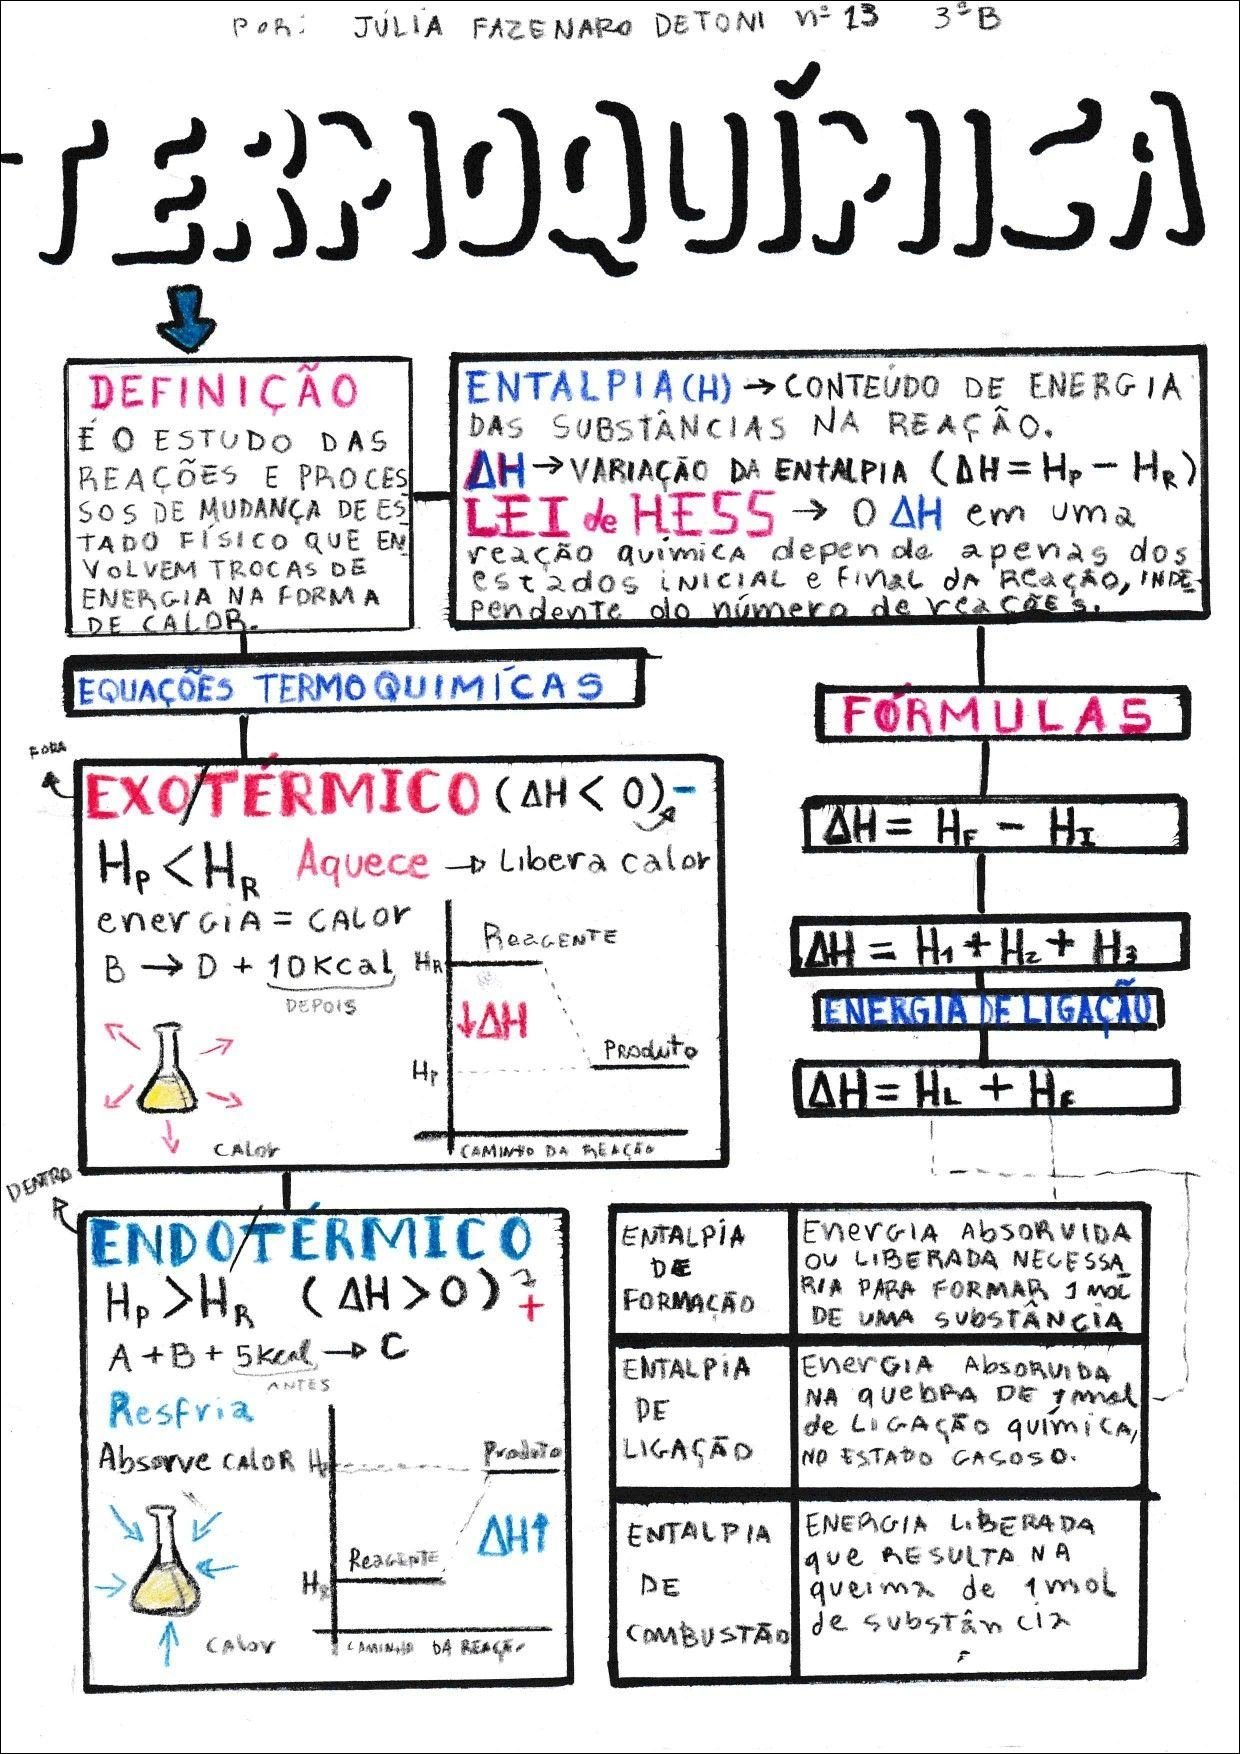 POR: JÚLIA FAZENARO DETONI nº 13 3ºB
TERMOQUÍMICA
DEFINIÇÃO
É O ESTUDO DAS
REAÇÕES E PROCES
SOS DE MUDANÇA DE ES
TADO FÍSICO QUE EN
VOLVEM TROCAS DE
ENERGIA NA FORMA
DE CALOR.
ENTALPIA(H) → CONTEÚDO DE ENERGIA
DAS SUBSTÂNCIAS NA REAÇÃO.
ΔH → VARIAÇÃO DA ENTALPIA (ΔH = HP - HR)
LEI de HESS → O ΔH em uma
reação química depende apenas dos
estados inicial e final da reação, INDE-
pendente do número de reações.
EQUAÇÕES TERMOQUIMÍCAS
FORA
EXO/TÉRMICO (ΔH < 0) -
HP < HR Aquece → Libera calor
energia = calor
B → D + 10Kcal
DEPOIS
HR
Reagente
↓ΔH
Produto
HP
CAMINHO DA REAÇÃO
CALOR
FÓRMULAS
ΔH = HF - HI
ΔH = H1 + H2 + H3
ENERGIA DE LIGAÇÃO
ΔH = HL + HF
DENTRO
ENDO/TÉRMICO
HP > HR (ΔH > 0) +
A + B + 5Kcal → C
ANTES
Resfria
Absorve calor
HP
Produto
ΔH↑
Reagente
HR
CAMINHO DA REAÇÃO
CALOR
ENTALPIA
DE
FORMAÇÃO
ENERGIA ABSORVIDA
OU LIBERADA NECESSA
RIA PARA FORMAR 1 MOL
DE UMA SUBSTÂNCIA
ENTALPIA
DE
LIGAÇÃO
ENERGIA ABSORVIDA
NA QUEBRA DE 1 mol
de LIGAÇÃO química,
NO ESTADO GASOSO.
ENTALPIA
DE
COMBUSTÃO
ENERGIA LIBERADA
que RESULTA NA
queima de 1 mol
de substância